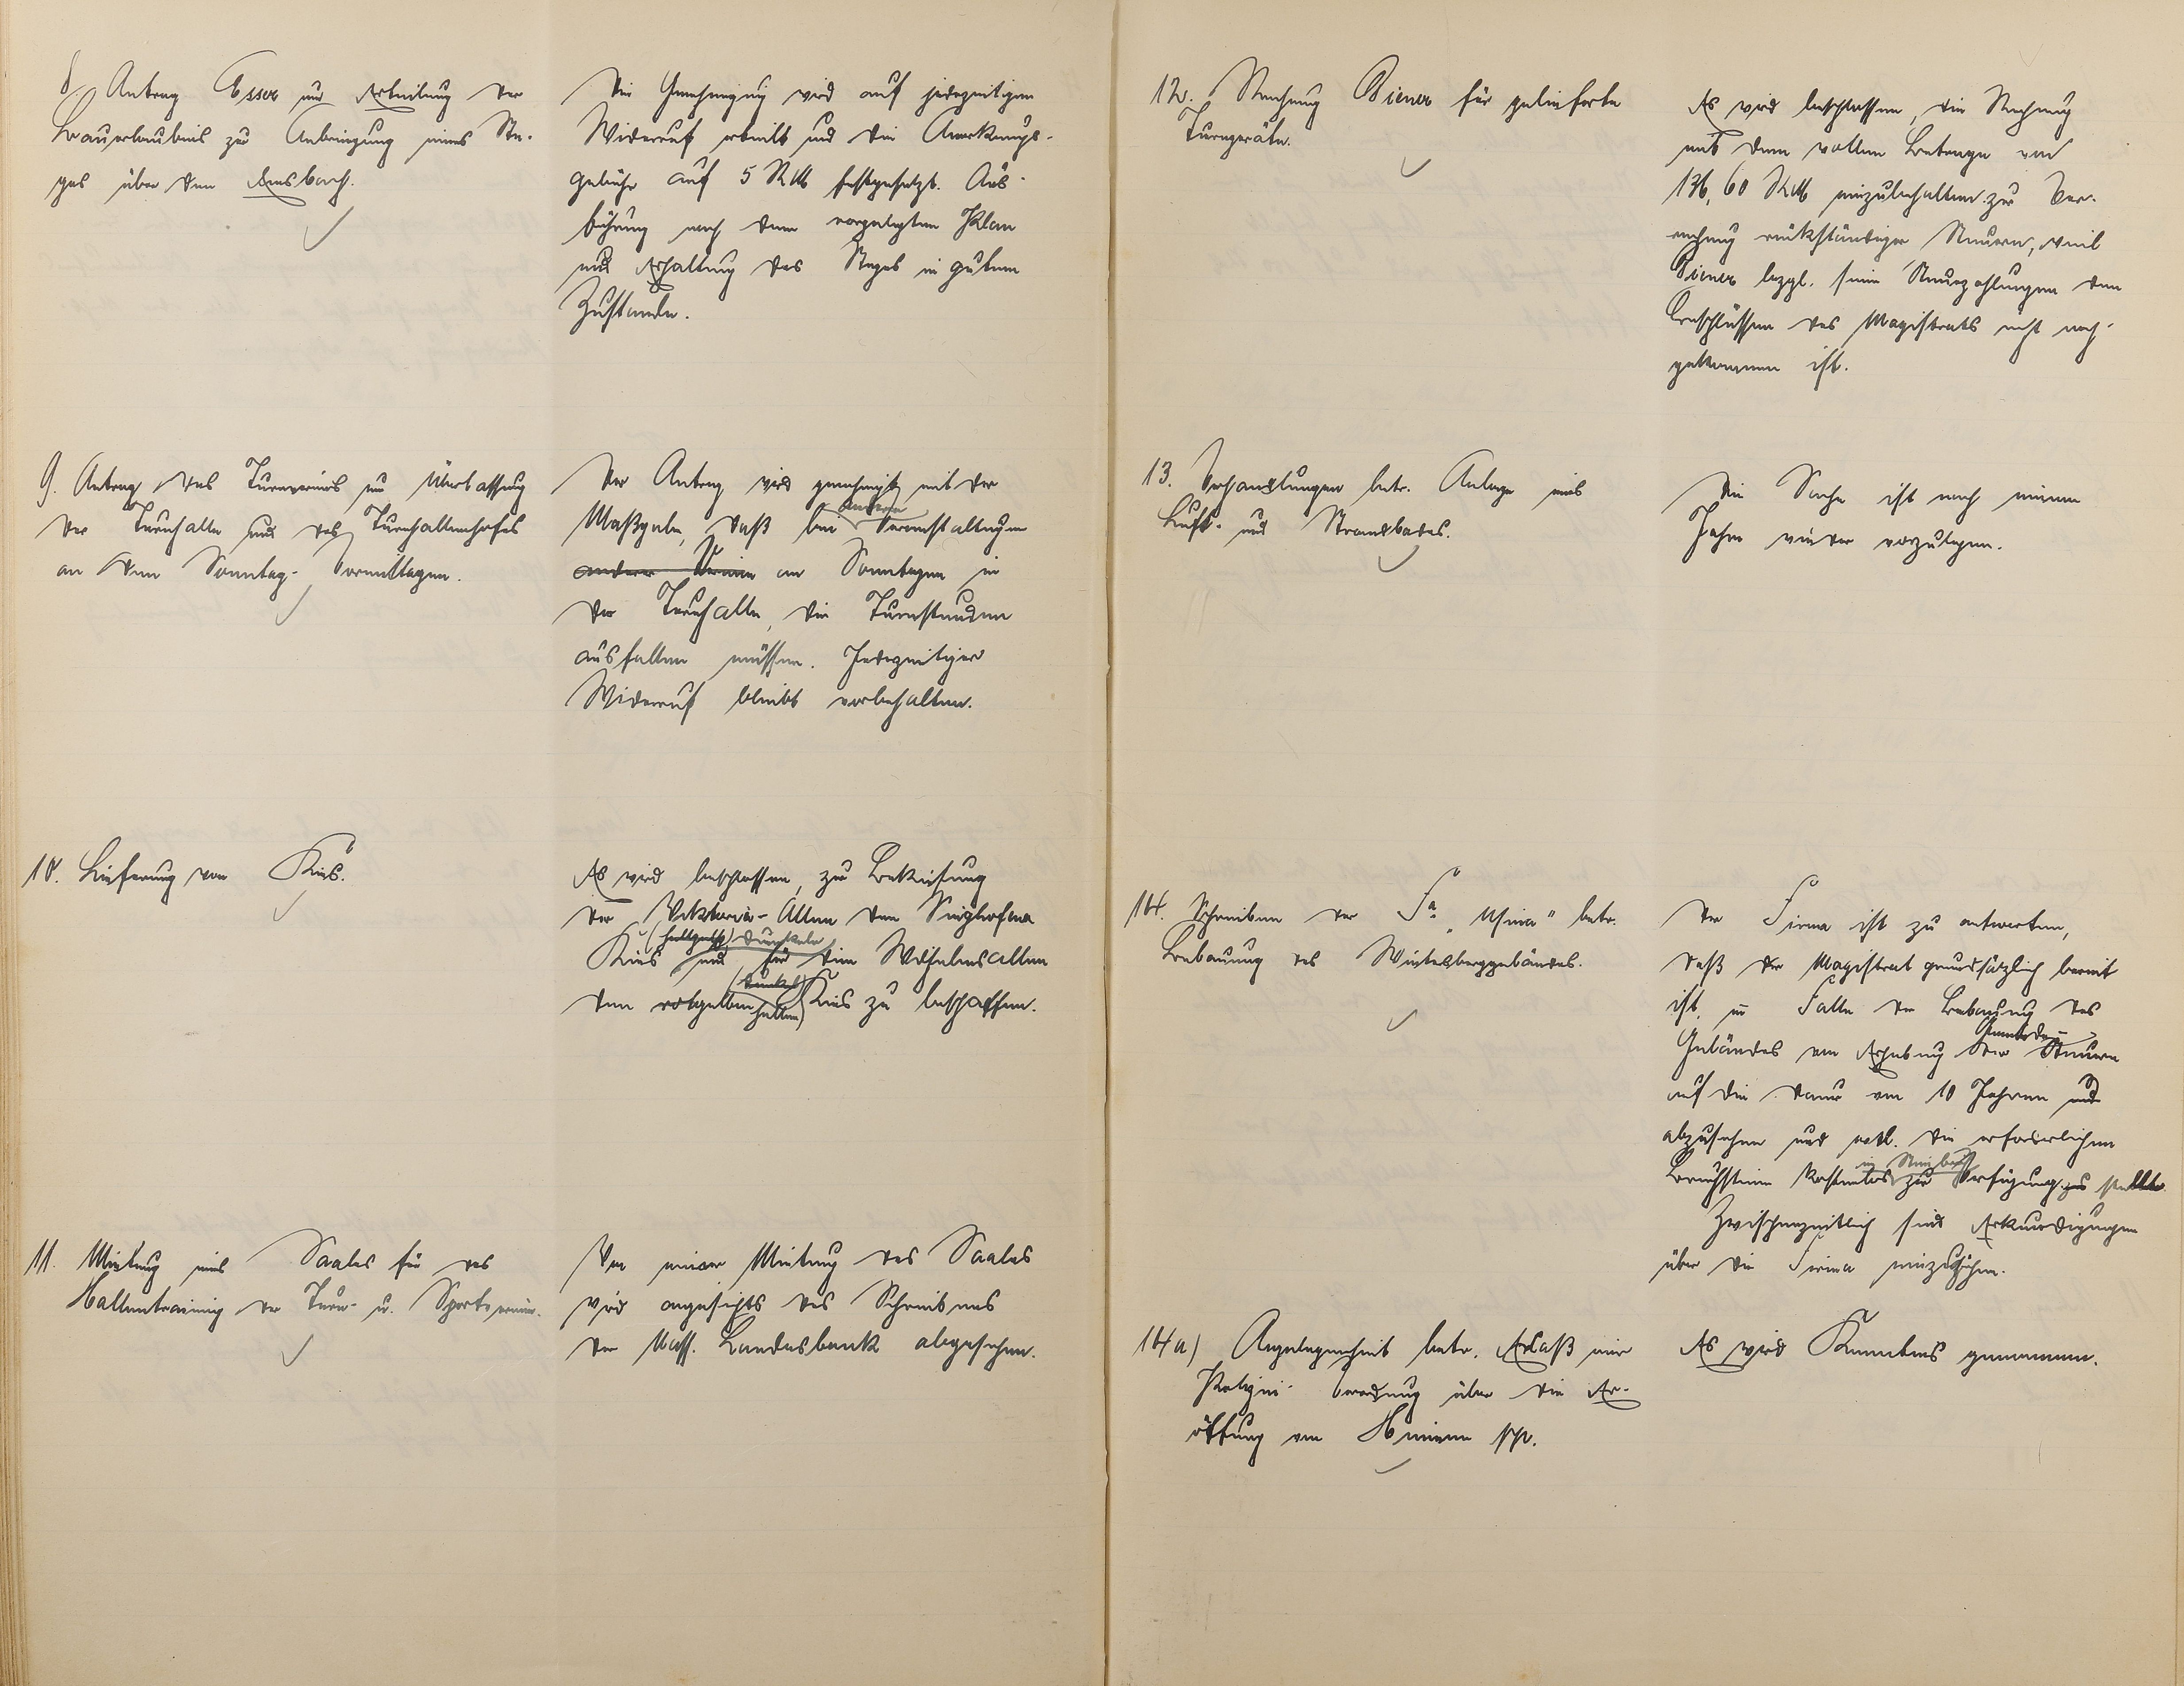 8. Antrag Esser um Erteilung der
Bauerlaubnis zur Anbringung eines Ste-
ges über den Emsbach.
Die Genehmigung wird auf jederzeitigen
Widerruf erteilt und die Anerkennungs-
gebühr auf 5 RM festgesetzt. Aus-
führung nach dem vorgelegten Plan
und Erhaltung des Steges in gutem
Zustande.
9. Antrag des Turnvereins um Überlassung
der Turnhalle und des Turnhallenhofes
an den Sonntag-Vormittagen.
Der Antrag wird genehmigt mit der
Maßgabe, daß bei anderen Veranstaltungen
anderer Vereine an Sonntagen in
der Turnhalle, die Turnstunden
ausfallen müssen. Jederzeitiger
Widerruf bleibt vorbehalten.
10. Lieferung von Kies.
Es wird beschlossen, zur Bekiesung
der Viktoria-Allee den Singhofener
(hellgelb) dunkele
Kies und für die Wilhelmsallee
(dunkel)
den rotgelben hellen) Kies zu beschaffen.
11. Mietung eines Saales für das
Hallentraining der Turn- u. Sportvereine.
Von einer Mietung des Saales
wird angesichts des Schreibens
der Nass. Landesbank abgesehen.
12. Rechnung Diener für gelieferte
Turngeräte.
Es wird beschlossen, die Rechnung
mit dem vollen Betrage von
136,60 RM einzubehalten zur Ver-
rechnung rückständiger Steuern, weil
Diener bezgl. seine Steuerzahlungen den
Beschlüssen des Magistrats nicht nach-
gekommen ist.
13. Verhandlungen betr. Anlage eines
Luft- und Strandbades.
Die Sache ist nach einem
Jahre wieder vorzulegen.
14. Schreiben der Fa. "Usina" betr.
Bebauung des Wintersberggeländes.
Der Firma ist zu antworten,
daß der Magistrat grundsätzlich bereit
ist, im Falle der Bebauung des
Geländes von Erhebung der Steuern
auf die Dauer von 10 Jahren und
abzusehen und evtl. die erforderlichen
im Steinbruch
Bruchsteine kostenlos zur Verfügung zu stellen.
Zwischenzeitlich sind Erkundigungen
über die Firma einzuziehen.
14a) Angelegenheit betr. Erlaß einer
Polizei-Verordnung über die Er-
öffnung von Heimen pp.
Es wird Kenntnis genommen.